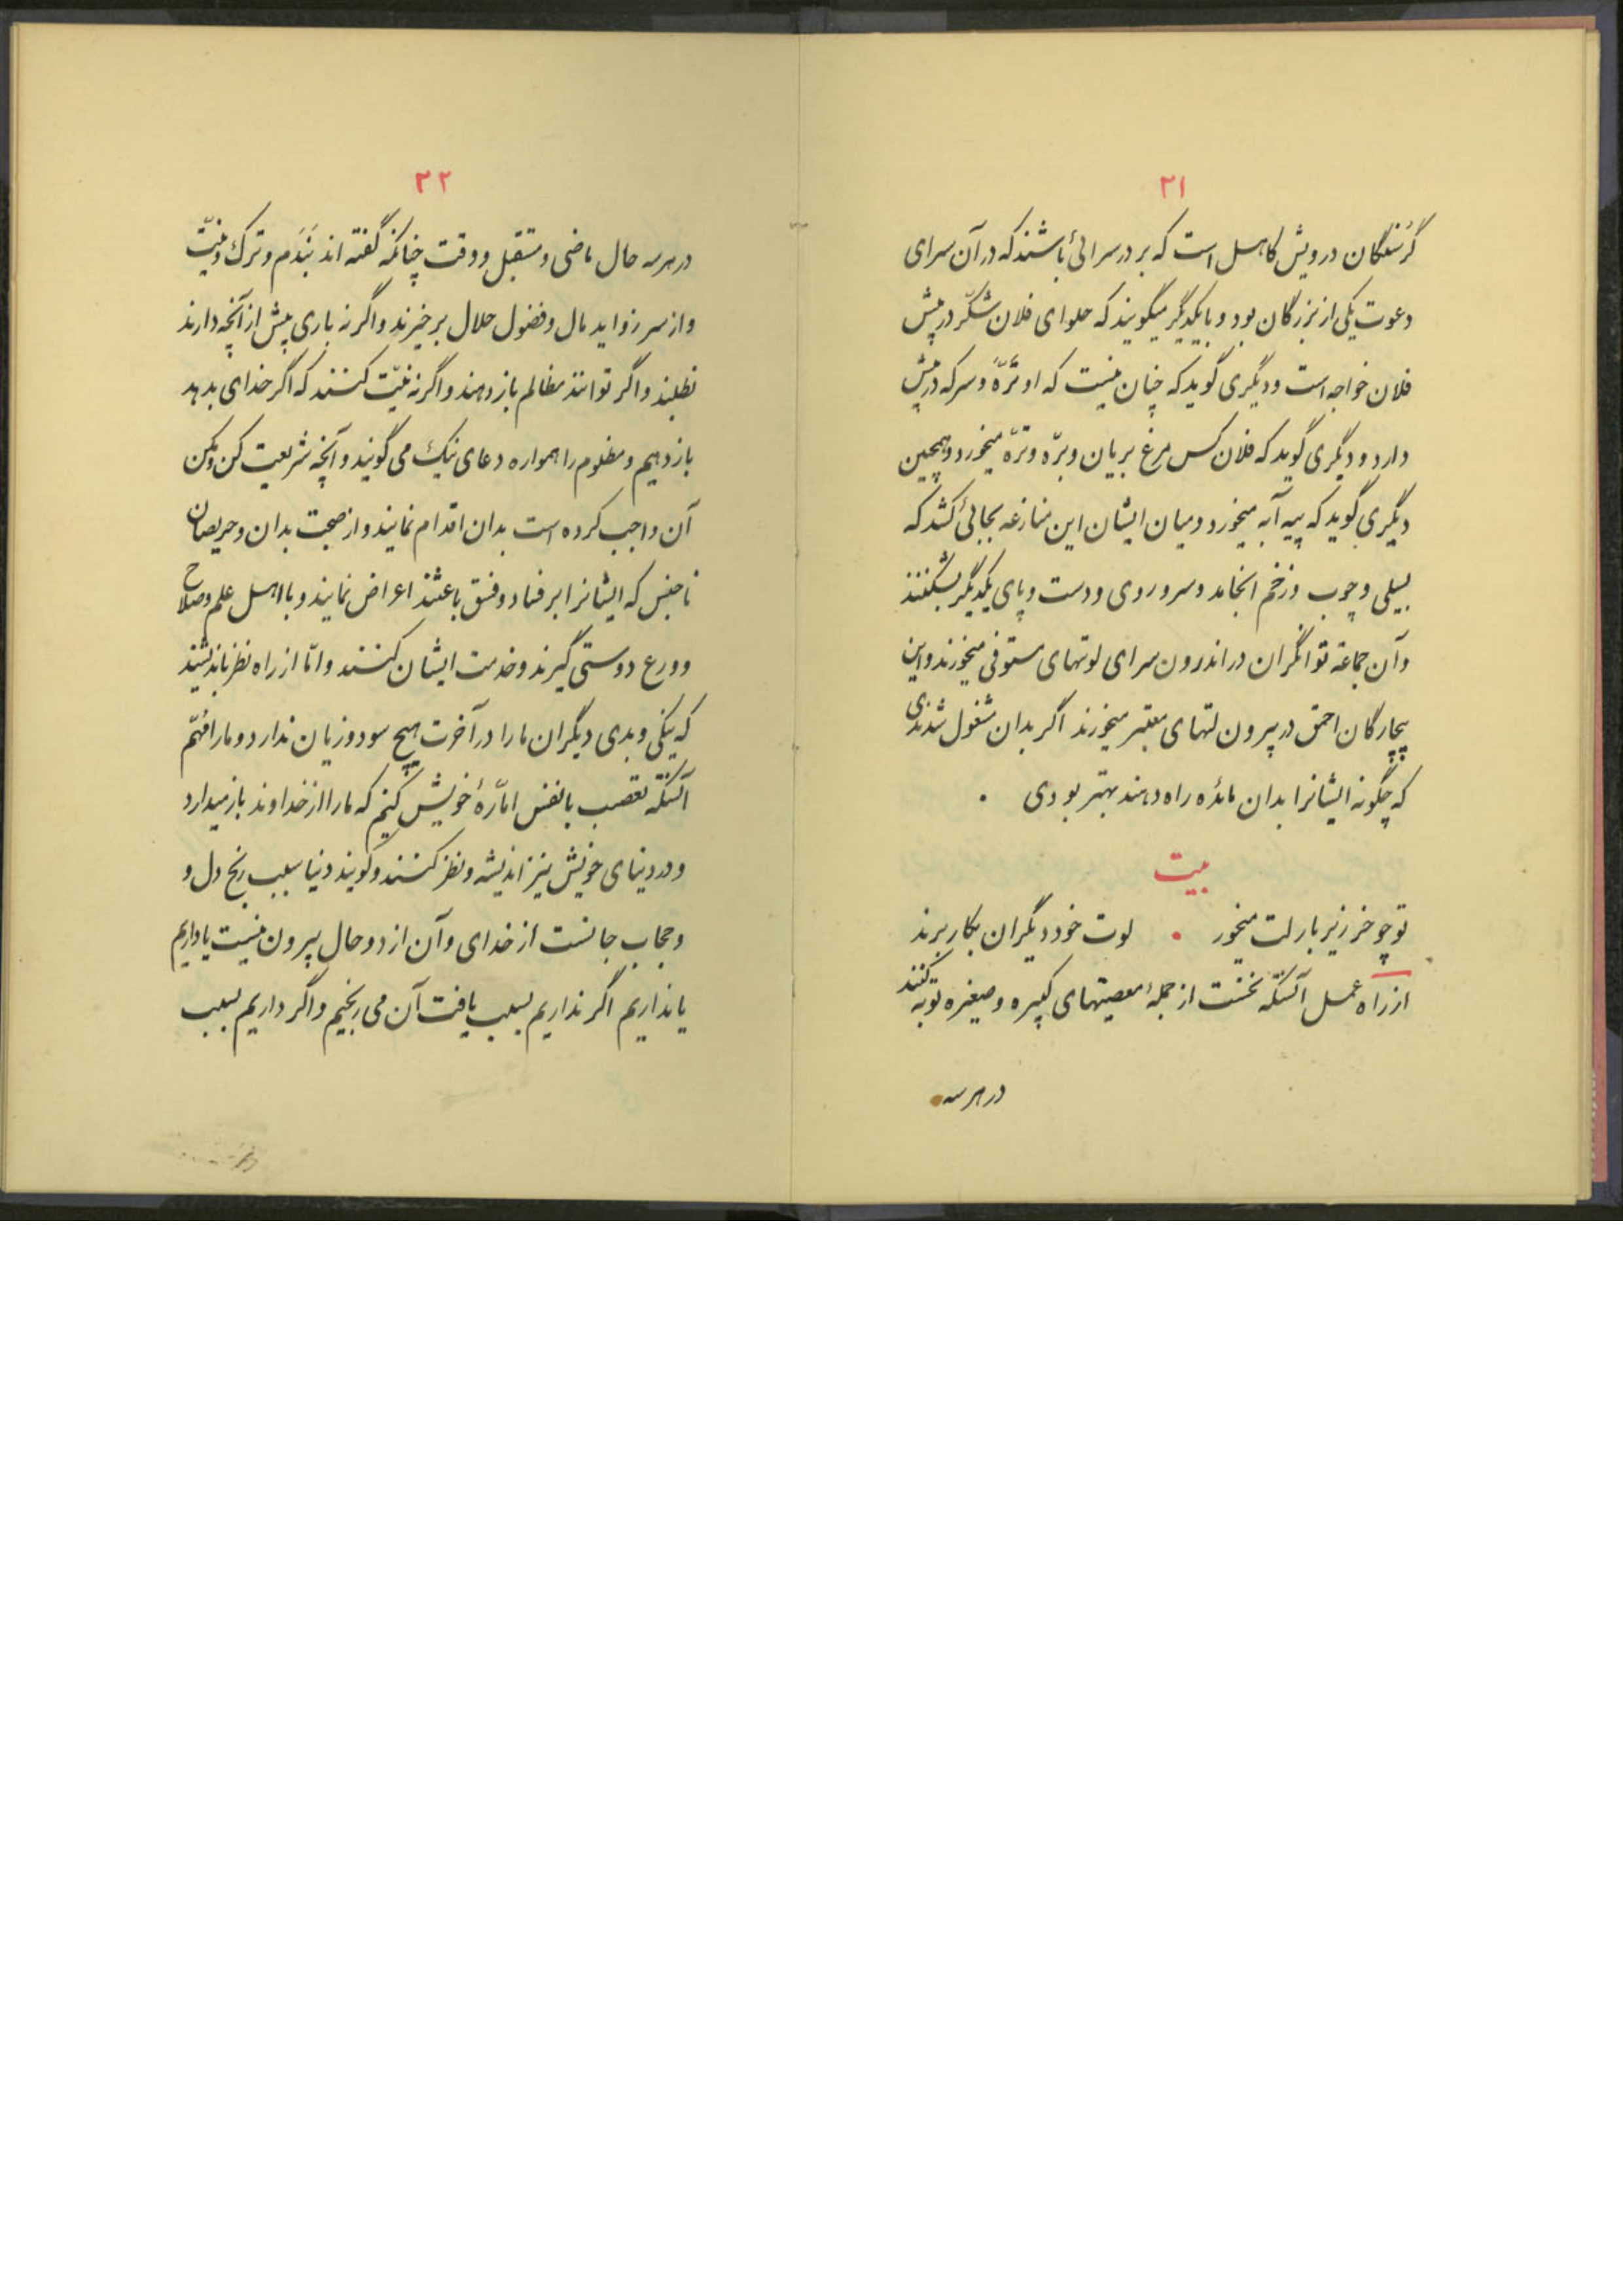 ۲۱
گرُسنگان درویش کاهل است که بر در سرائی باشند که در آن سرای
دعوت یکی از بزرگان بود و با یکدیگر میگویند که حلوای فلان شکّر در پیش
فلان خواجه است و دیگری گوید که چنان نیست که او ترّه و سرکه در پیش
دارد و دیگری گوید که فلان کس مرغ بریان و برّه و ترّه میخورد و همچنین
دیگری گوید که پیه آبه میخورد و میان ایشان این منازعه بجائی کشد که
بسیلی و چوب و زخم انجامد و سر و روی و دست و پای یکدیگر بشکنند
و آن جماعة توانگران در اندرون سرای لوتهای مستوفی میخورند و این
بیچارگان احمق در بیرون لتهای معتبر میخورند اگر بدان مشغول شدندی
که چگونه ایشانرا بدان مائده راه دهند بهتر بودی
بیت
تو چو خر زیر بار لت میخور • لوت خود دیگران بکار برند
از راه عمل آنستکه نخست از جملهٔ معصیتهای کبیره و صغیره توبه کنند
در هر سه
۲۲
در هر سه حال ماضی و مستقبل و وقت چنانکه گفته اند بنَدَم و ترک و نیّت
و از سر زواید مال و فضول حلال برخیزند و اگر نه باری بیش از آنچه دارند
نطلبند و اگر توانند مظالم باز دهند و اگر نه نیّت کنند که اگر خدای بدهد
باز دهیم و مظلوم را همواره دعای نیک می گویند و آنچه شریعت کن و مکن
آن واجب کرده است بدان اقدام نمایند و از صحبت بدان و حریصان
ناجنس که ایشانرا بر فساد و فسق باعثند اعراض نمایند و با اهل علم و صلاح
و ورع دوستی گیرند و خدمت ایشان کنند و امّا از راه نظر باندیشند
که نیکی و بدی دیگران ما را در آخرت هیچ سود و زیان ندارد و ما را مُهِّم
آنستکه تعصب با نفس امّارهٔ خویش کنیم که ما را از خداوند باز میدارد
و در دنیای خویش نیز اندیشه و نظر کنند و گویند دنیا سبب رنج دل و
و حجاب جانست از خدای و آن از دو حال بیرون نیست یا داریم
یا نداریم اگر نداریم بسبب یافت آن می رنجیم و اگر داریم بسبب